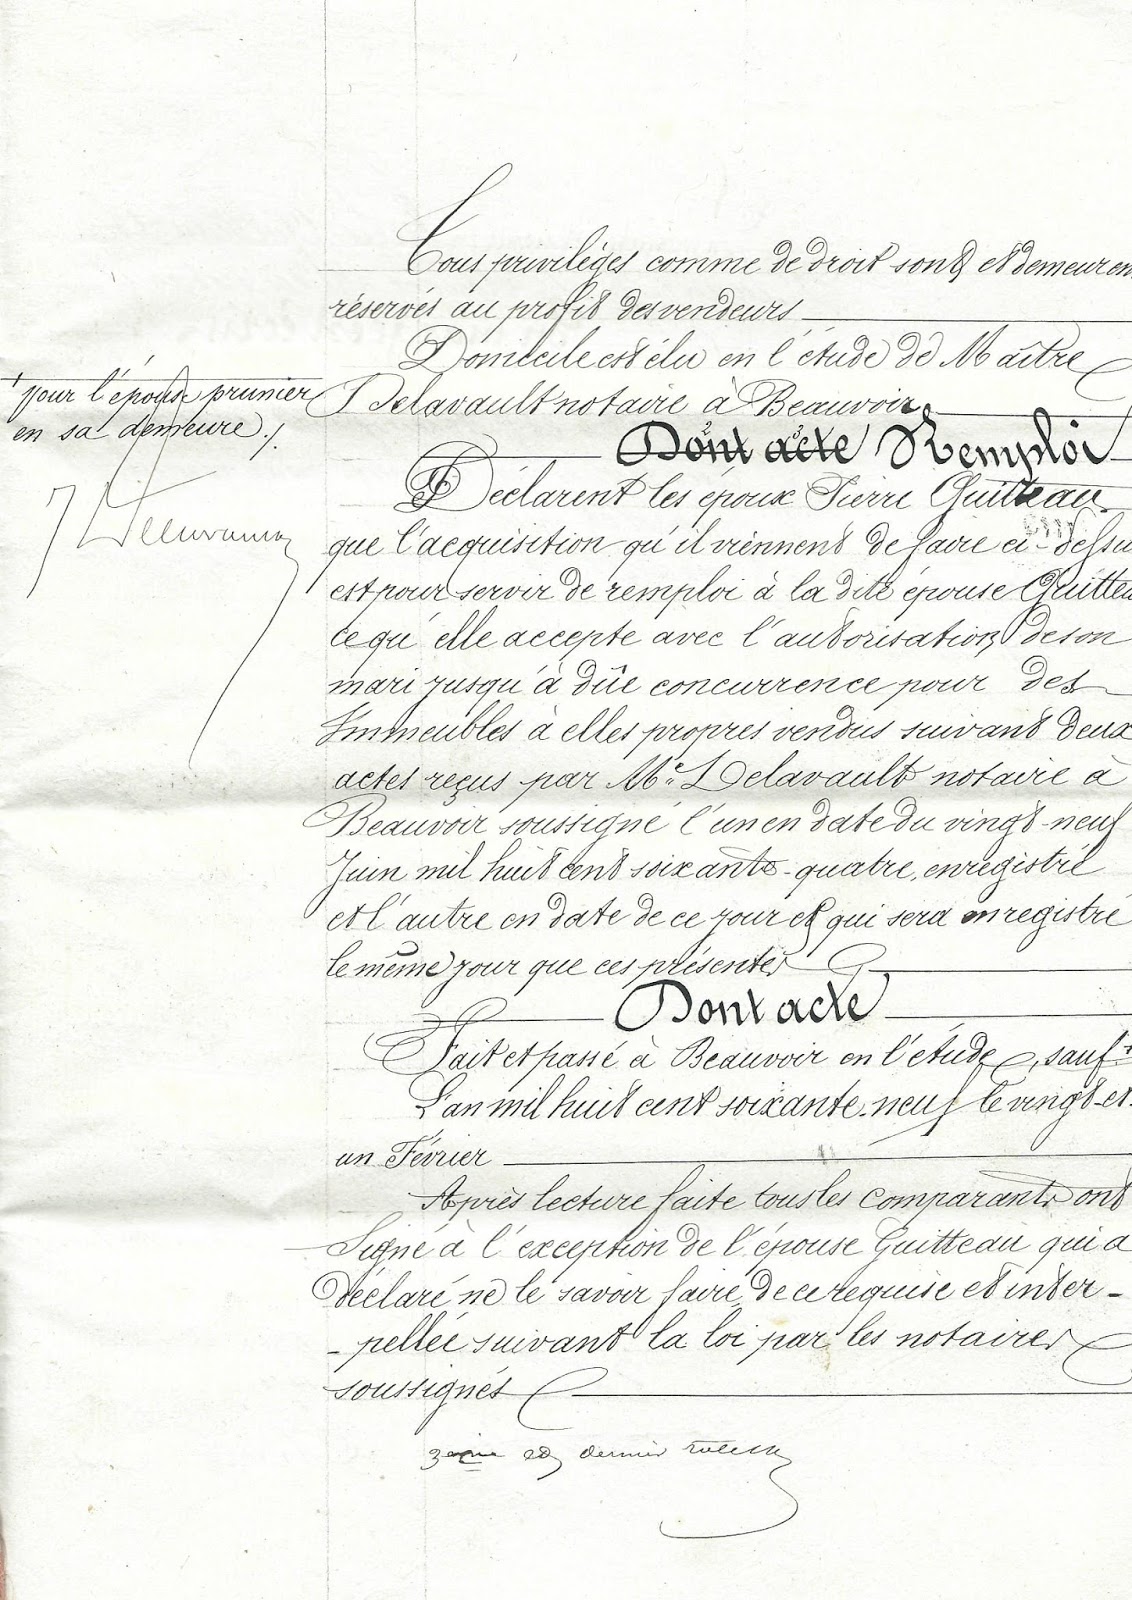 Tous privilèges comme de droit sont et demeurent
réservés au profit des vendeurs
Domicile est élu en l'étude de Maître
Delavault notaire à Beauvoir.
+ pour l'épouse prunier
en sa demeure ./.
Dont acte Remploi
Déclarent les époux Pierre Guitteau
que l'acquisition qu'il viennent de faire ci-dessu
est pour servir de remploi à la dite épouse Guitteau
ce qu'elle accepte avec l'autorisation de son
mari jusqu'à dûe concurrence pour des
Immeubles à elles propres vendus suivant deux
actes reçus par Me Delavault notaire à
Beauvoir soussigné l'un en date du vingt-neuf
Juin mil huit cent soixante-quatre, enregistré
et l'autre en date de ce jour et qui sera enregistré
le même jour que ces présentes
Dont acte
Fait et passé à Beauvoir en l'étude, sauf +
L'an mil huit cent soixante-neuf le vingt-et-
un Février
Après lecture faite tous les comparants ont
Signé à l'exception de l'épouse Guitteau qui a
déclaré ne le savoir faire de ce requise et inter-
-pellée suivant la loi par les notaires
soussignés
et dernier